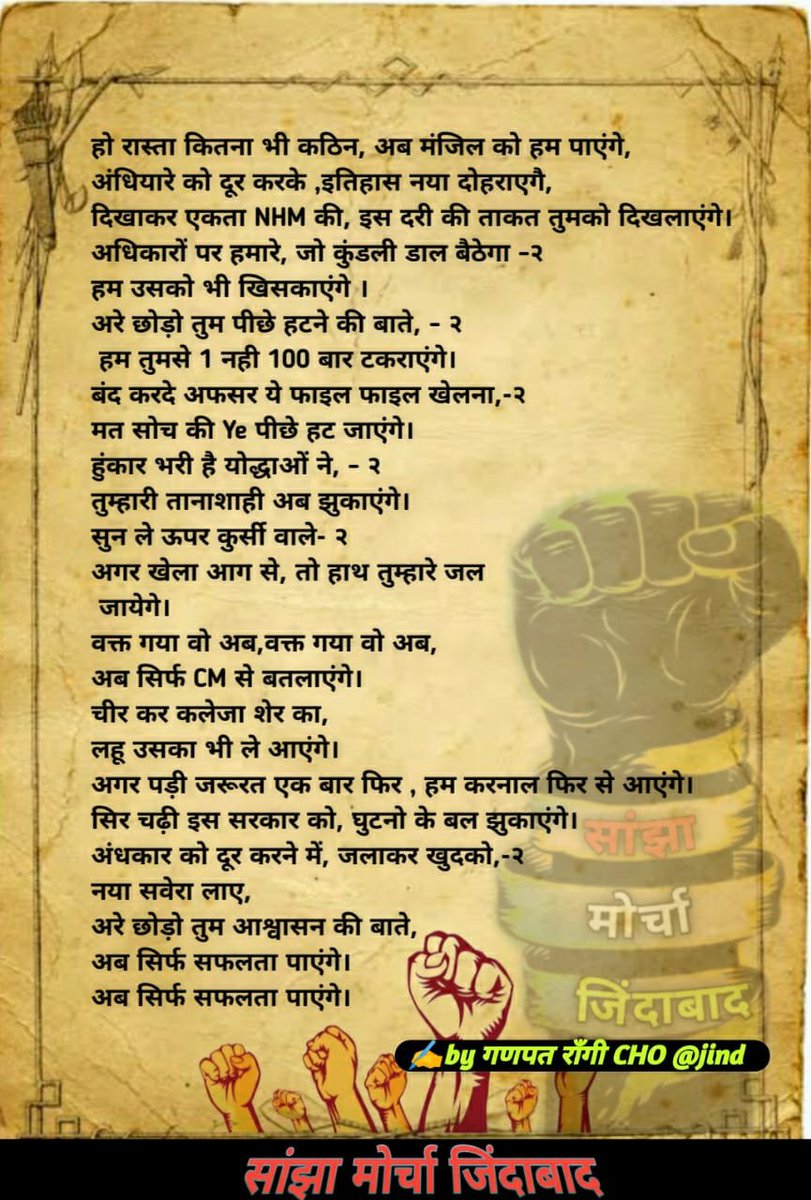 हो रास्ता कितना भी कठिन, अब मंजिल को हम पाएंगे,
अंधियारे को दूर करके ,इतिहास नया दोहराएगै,
दिखाकर एकता NHM की, इस दरी की ताकत तुमको दिखलाएंगे।
अधिकारों पर हमारे, जो कुंडली डाल बैठेगा -२
हम उसको भी खिसकाएंगे ।
अरे छोड़ो तुम पीछे हटने की बाते, - २
हम तुमसे 1 नही 100 बार टकराएंगे।
बंद करदे अफसर ये फाइल फाइल खेलना,-२
मत सोच की Ye पीछे हट जाएंगे।
हुंकार भरी है योद्धाओं ने, - २
तुम्हारी तानाशाही अब झुकाएंगे।
सुन ले ऊपर कुर्सी वाले- २
अगर खेला आग से, तो हाथ तुम्हारे जल
जायेगे।
वक्त गया वो अब,वक्त गया वो अब,
अब सिर्फ CM से बतलाएंगे।
चीर कर कलेजा शेर का,
लहू उसका भी ले आएंगे।
अगर पड़ी जरूरत एक बार फिर , हम करनाल फिर से आएंगे।
सिर चढ़ी इस सरकार को, घुटनो के बल झुकाएंगे।
अंधकार को दूर करने में, जलाकर खुदको,-२
नया सवेरा लाए,
अरे छोड़ो तुम आश्वासन की बाते,
अब सिर्फ सफलता पाएंगे।
अब सिर्फ सफलता पाएंगे।
सांझा
मोर्चा
जिंदाबाद
✍️by गणपत राँगी CHO @jind
सांझा मोर्चा जिंदाबाद